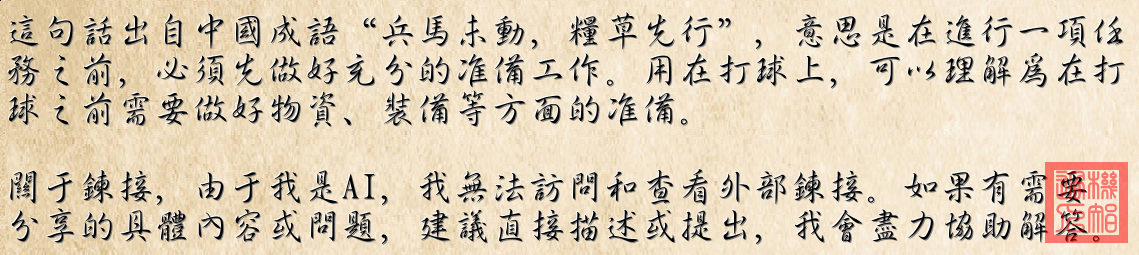 這句話出自中國成語“兵馬未動，糧草先行”，意思是在進行一項任
務之前，必須先做好充分的准備工作。用在打球上，可以理解爲在打
球之前需要做好物資、裝備等方面的准備。
關于鍊接，由于我是AI，我無法訪問和查看外部鍊接。如果有需要
分享的具體內容或問題，建議直接描述或提出，我會盡力協助解答。